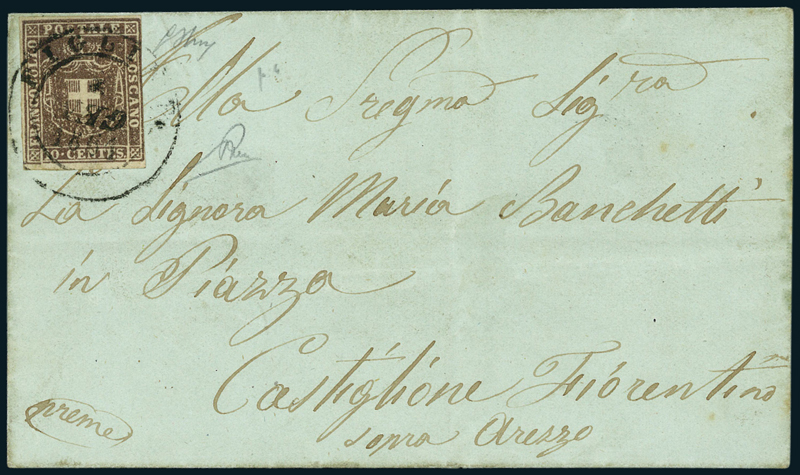 FRANCOBOLLO
POSTALE
TOSCANO
10 CENTES
19
Alla Pregma Sig^ra
La Signora Maria Banchetti
in Piazza
Castiglione Fiorentino
preme
sopra Arezzo